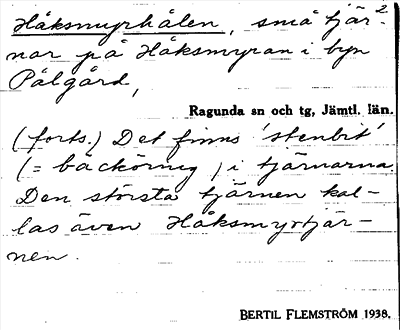 Håksmyrhålen, små tjär-
2
nar på Håksmyran i byn
Pålgård,
Ragunda sn och tg, Jämtl. län.
(forts.) Det finns 'stenbit'
(= bäcköring) i tjärnarna
Den största tjärnen kal-
las även Håksmyrtjär-
nen.
BERTIL FLEMSTRÖM 1938.